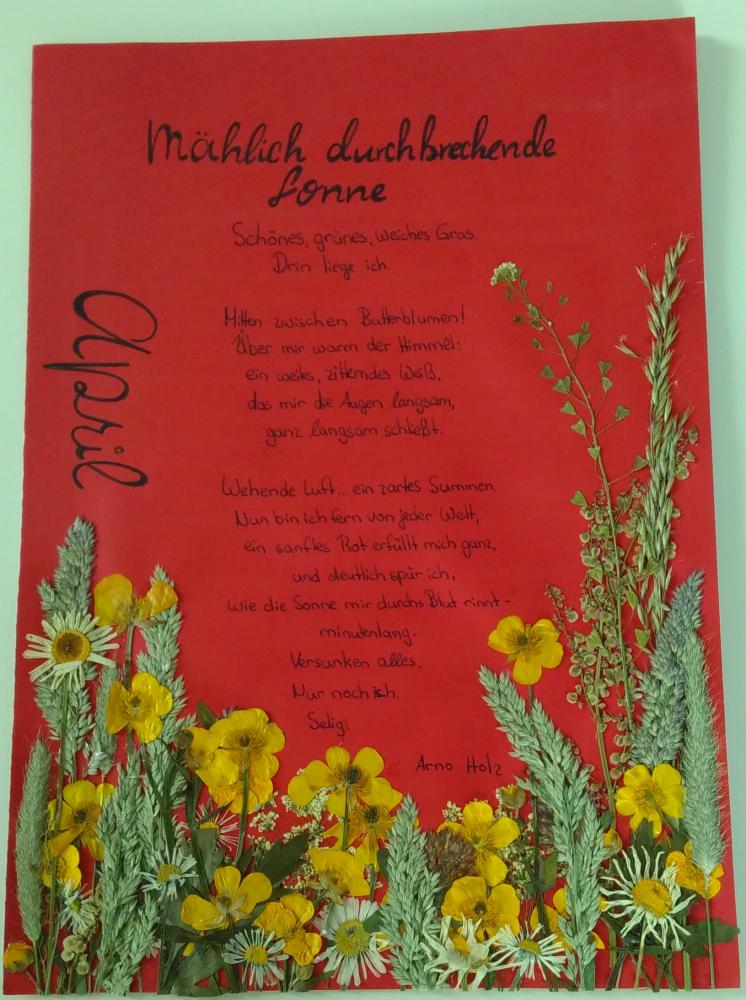 Mählich durchbrechende
Sonne
Schönes, grünes, weiches Gras.
Drin liege ich.
April
Mitten zwischen Butterblumen!
Über mir warm der Himmel:
ein weites, zitterndes Weiß,
das mir die Augen langsam,
ganz langsam schließt.
Wehende Luft... ein zartes Summen.
Nun bin ich fern von jeder Welt,
ein sanftes Rot erfüllt mich ganz,
und deutlich spür ich,
wie die Sonne mir durchs Blut rinnt -
minutenlang.
Versunken alles.
Nur noch ich.
Selig.
Arno Holz